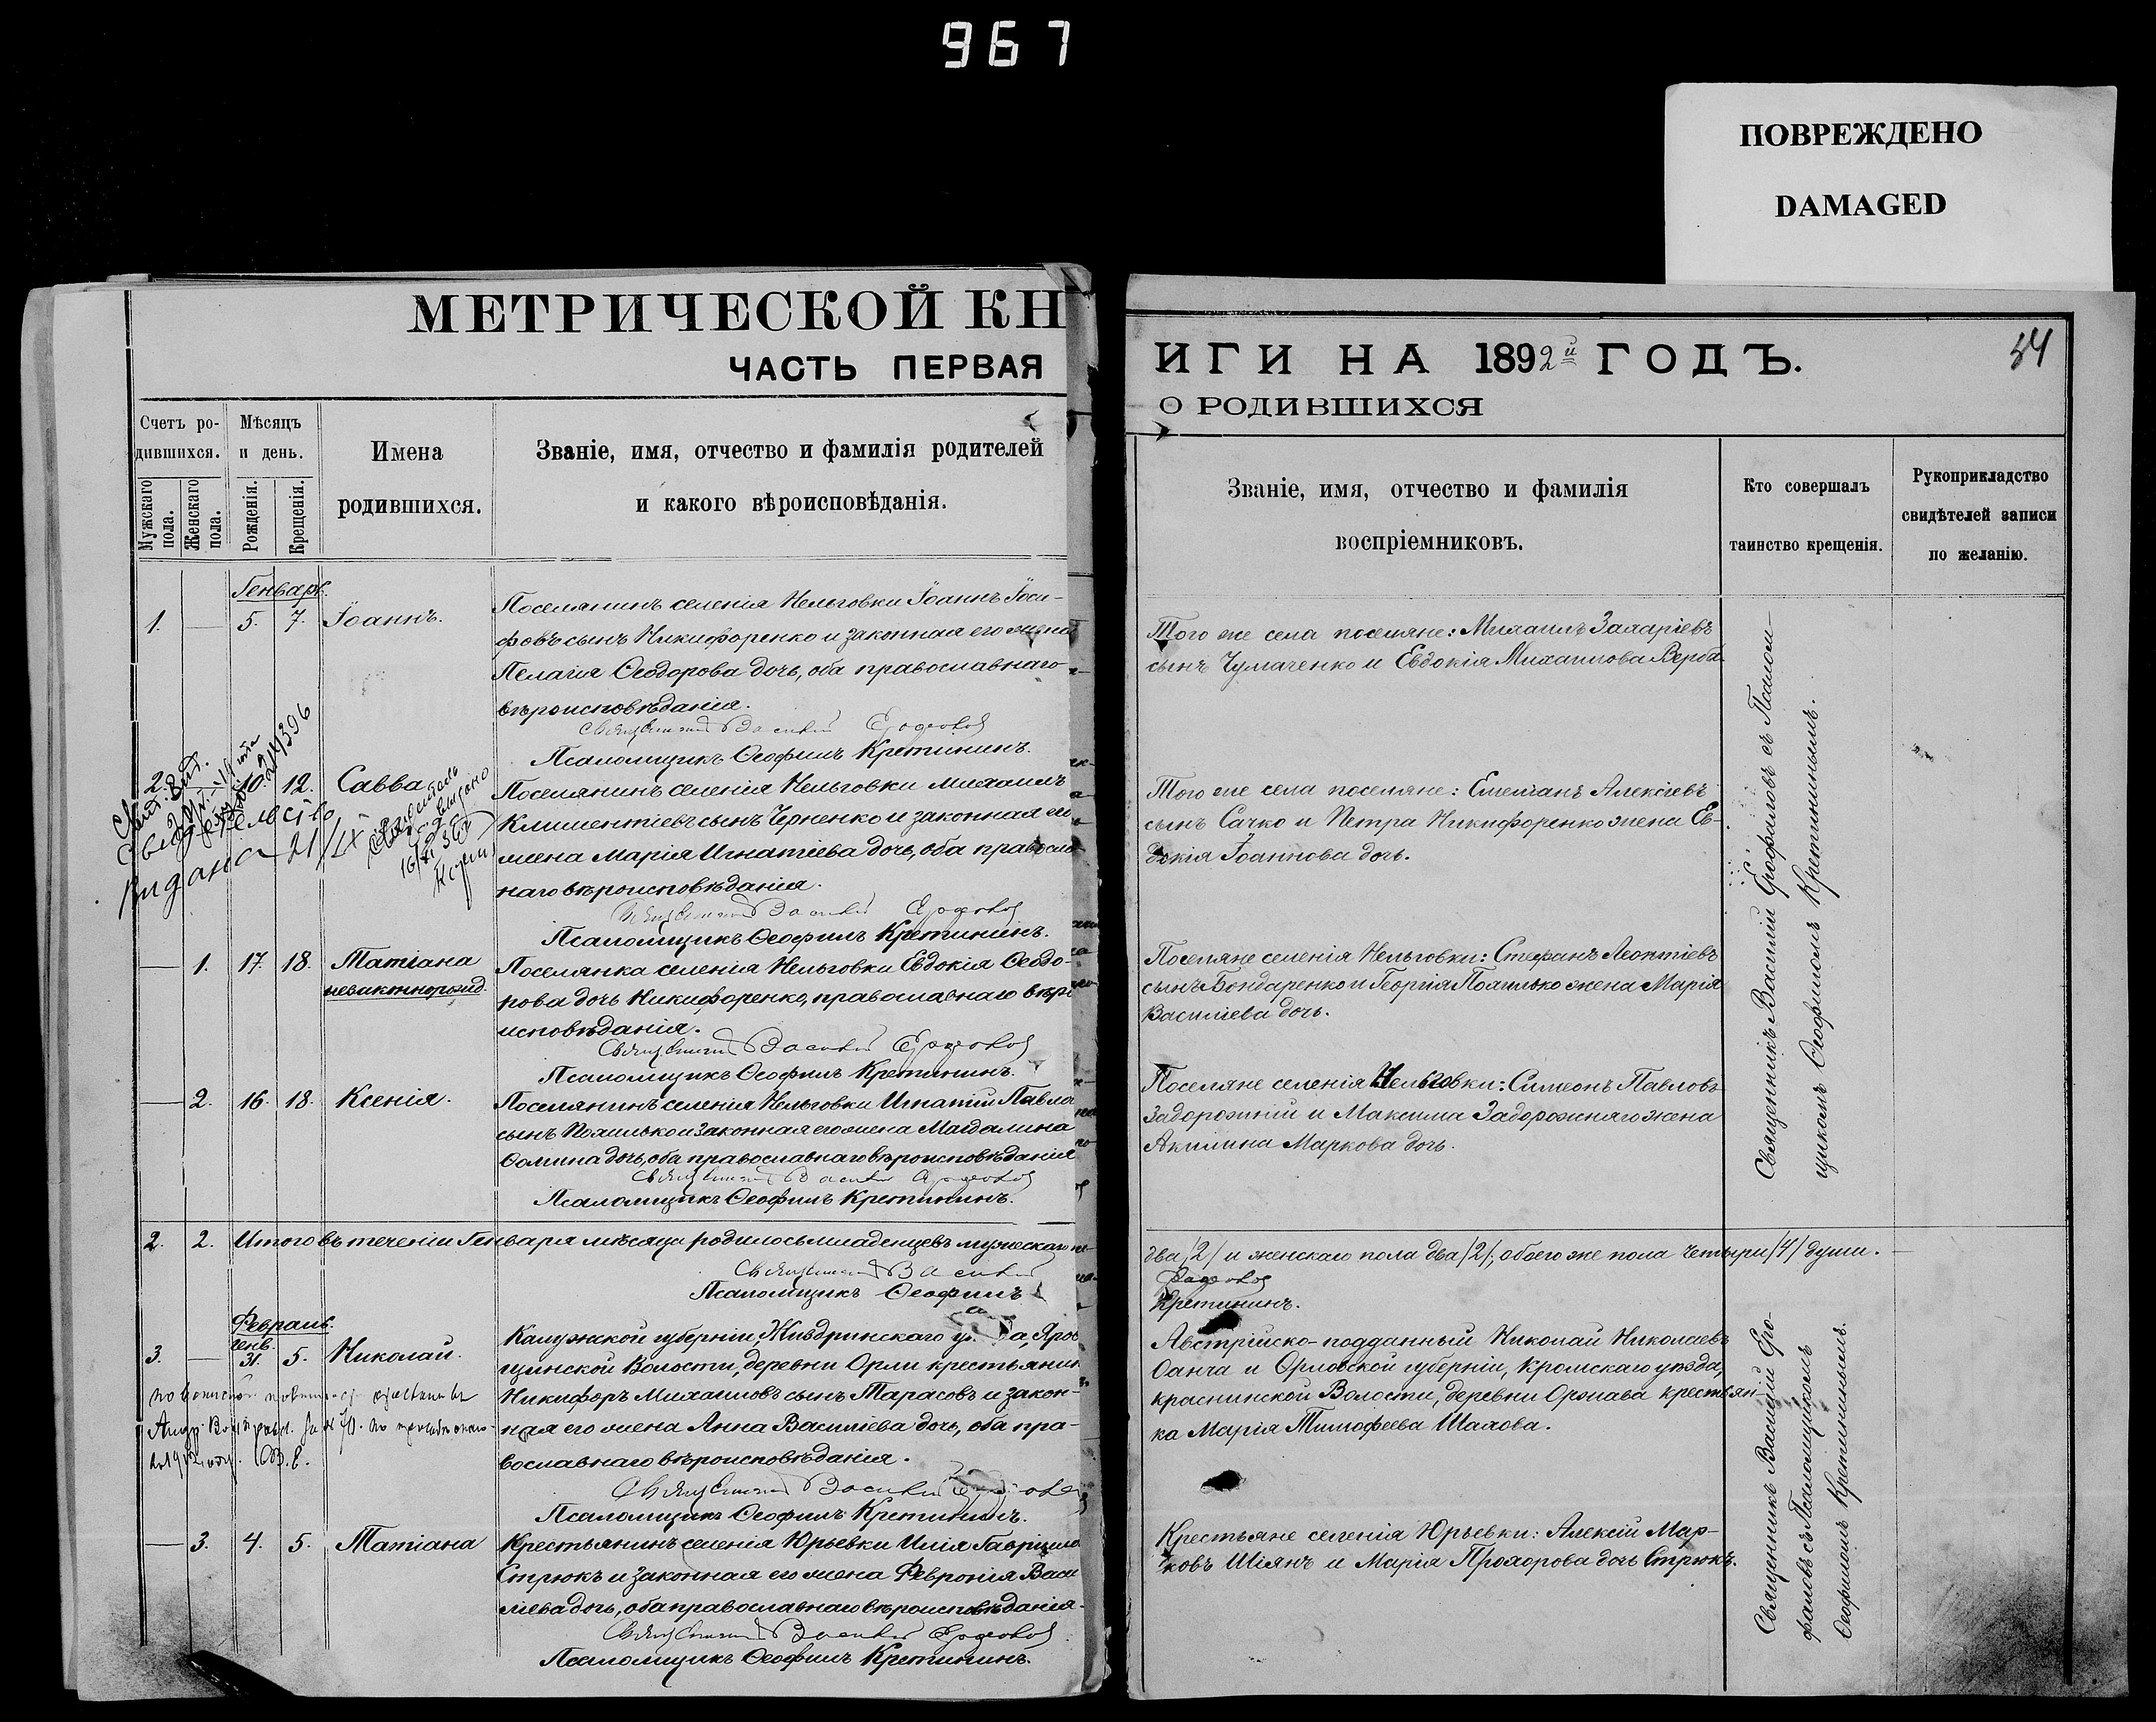 967
ПОВРЕЖДЕНО
DAMAGED
МЕТРИЧЕСКОЙ КН
ЧАСТЬ ПЕРВАЯ
Счетъ ро-
дившихся.
Мужскаго пола.
Женскаго пола.
Мѣсяцъ
и день.
Рожденія.
Крещенія.
Имена
родившихся.
Званіе, имя, отчество и фамилія родителей
и какого вѣроисповѣданія.
Генварь.
1. — 5. 7. Іоаннъ.
Поселянинъ селенія Нельговки Іоаннъ Іоси-
фовъ сынъ Никифоренко и законная его жена
Пелагія Ѳеодорова дочь, оба православнаго
вѣроисповѣданія.
Священникъ Василій
Псаломщикъ Ѳеофилъ Кретининъ.
2. 10. 12. Савва
Поселянинъ селенія Нельговки Михаилъ
Климентіевъ сынъ Черненко и законная его
жена Марія Игнатіева дочь, оба правосла
наго вѣроисповѣданія.
Священникъ Василій
Псаломщикъ Ѳеофилъ Кретининъ.
Свидетельство
выдано 21/IX
— 1. 17. 18. Татіана
незаконнорожд.
Поселянка селенія Нельговки Евдокія Ѳеодо-
рова дочь Никифоренко, православнаго вѣро
исповѣданія.
Священникъ Василій
Псаломщикъ Ѳеофилъ Кретининъ.
— 2. 16. 18. Ксенія.
Поселянинъ селенія Нельговки Игнатій Павло
сынъ Похилько и законная его жена Магдалина
Ѳомина дочь, оба православнаго вѣроисповѣданія
Священникъ Василій
Псаломщикъ Ѳеофилъ Кретининъ.
2. 2. Итого въ теченіи Генваря мѣсяца родилось младенцевъ мужескаго по-
Священникъ Василій
Псаломщикъ Ѳеофилъ
Февраль.
Генв.
3. — 31. 5. Николай.
Калужской губерніи Жиздринскаго у а, Яров
щинской Волости, деревни Орли крестьянин
Никифоръ Михаиловъ сынъ Тарасовъ и закон-
ная его жена Анна Василіева дочь, оба пра-
вославнаго вѣроисповѣданія.
Священникъ Василій
Псаломщикъ Ѳеофилъ Кретининъ.
— 3. 4. 5. Татіана
Крестьянинъ селенія Юрьевки Илія Гавриило
Стрюкъ и законная его жена Февронія Васи
ліева дочь, оба православнаго вѣроисповѣданія.
Священникъ Василій
Псаломщикъ Ѳеофилъ Кретининъ.
ИГИ НА 1892й ГОДЪ.
54
О РОДИВШИХСЯ
Званіе, имя, отчество и фамилія
воспріемниковъ.
Кто совершалъ
таинство крещенія.
Рукоприкладство
свидѣтелей записи
по желанію.
Того же села поселяне: Михаилъ Захаріевъ
сынъ Чумаченко и Евдокія Михаилова Верба
Того же села поселяне: Емеліанъ Алексіевъ
сынъ Сачко и Петра Никифоренко жена Ев-
докія Іоаннова дочь.
Поселяне селенія Нельговки: Стефанъ Леонтіевъ
сынъ Бондаренко и Георгія Похилько жена Марія
Василіева дочь.
Поселяне селенія Нельговки: Симеонъ Павловъ
Задорожній и Максима Задорожняго жена
Акилина Маркова дочь.
Священникъ Василій Ерофаловъ съ Псалом-
щикомъ Ѳеофиломъ Кретининымъ.
два /2/ и женскаго пола два /2/, обоего же пола четыри /4/ души.
Кретининъ.
Австрійско-подданный Николай Николаевъ
Санча и Орловской губерніи, Кромскаго уѣзда,
краснинской Волости, деревни крестьян-
ка Марія Тимофеева Шахова.
Крестьяне селенія Юрьевки: Алексій Мар-
ковъ Шіянъ и Марія Прохорова дочь Стрюкъ.
Священникъ Василій Еро-
фаловъ съ Псаломщикомъ
Ѳеофиломъ Кретининымъ.